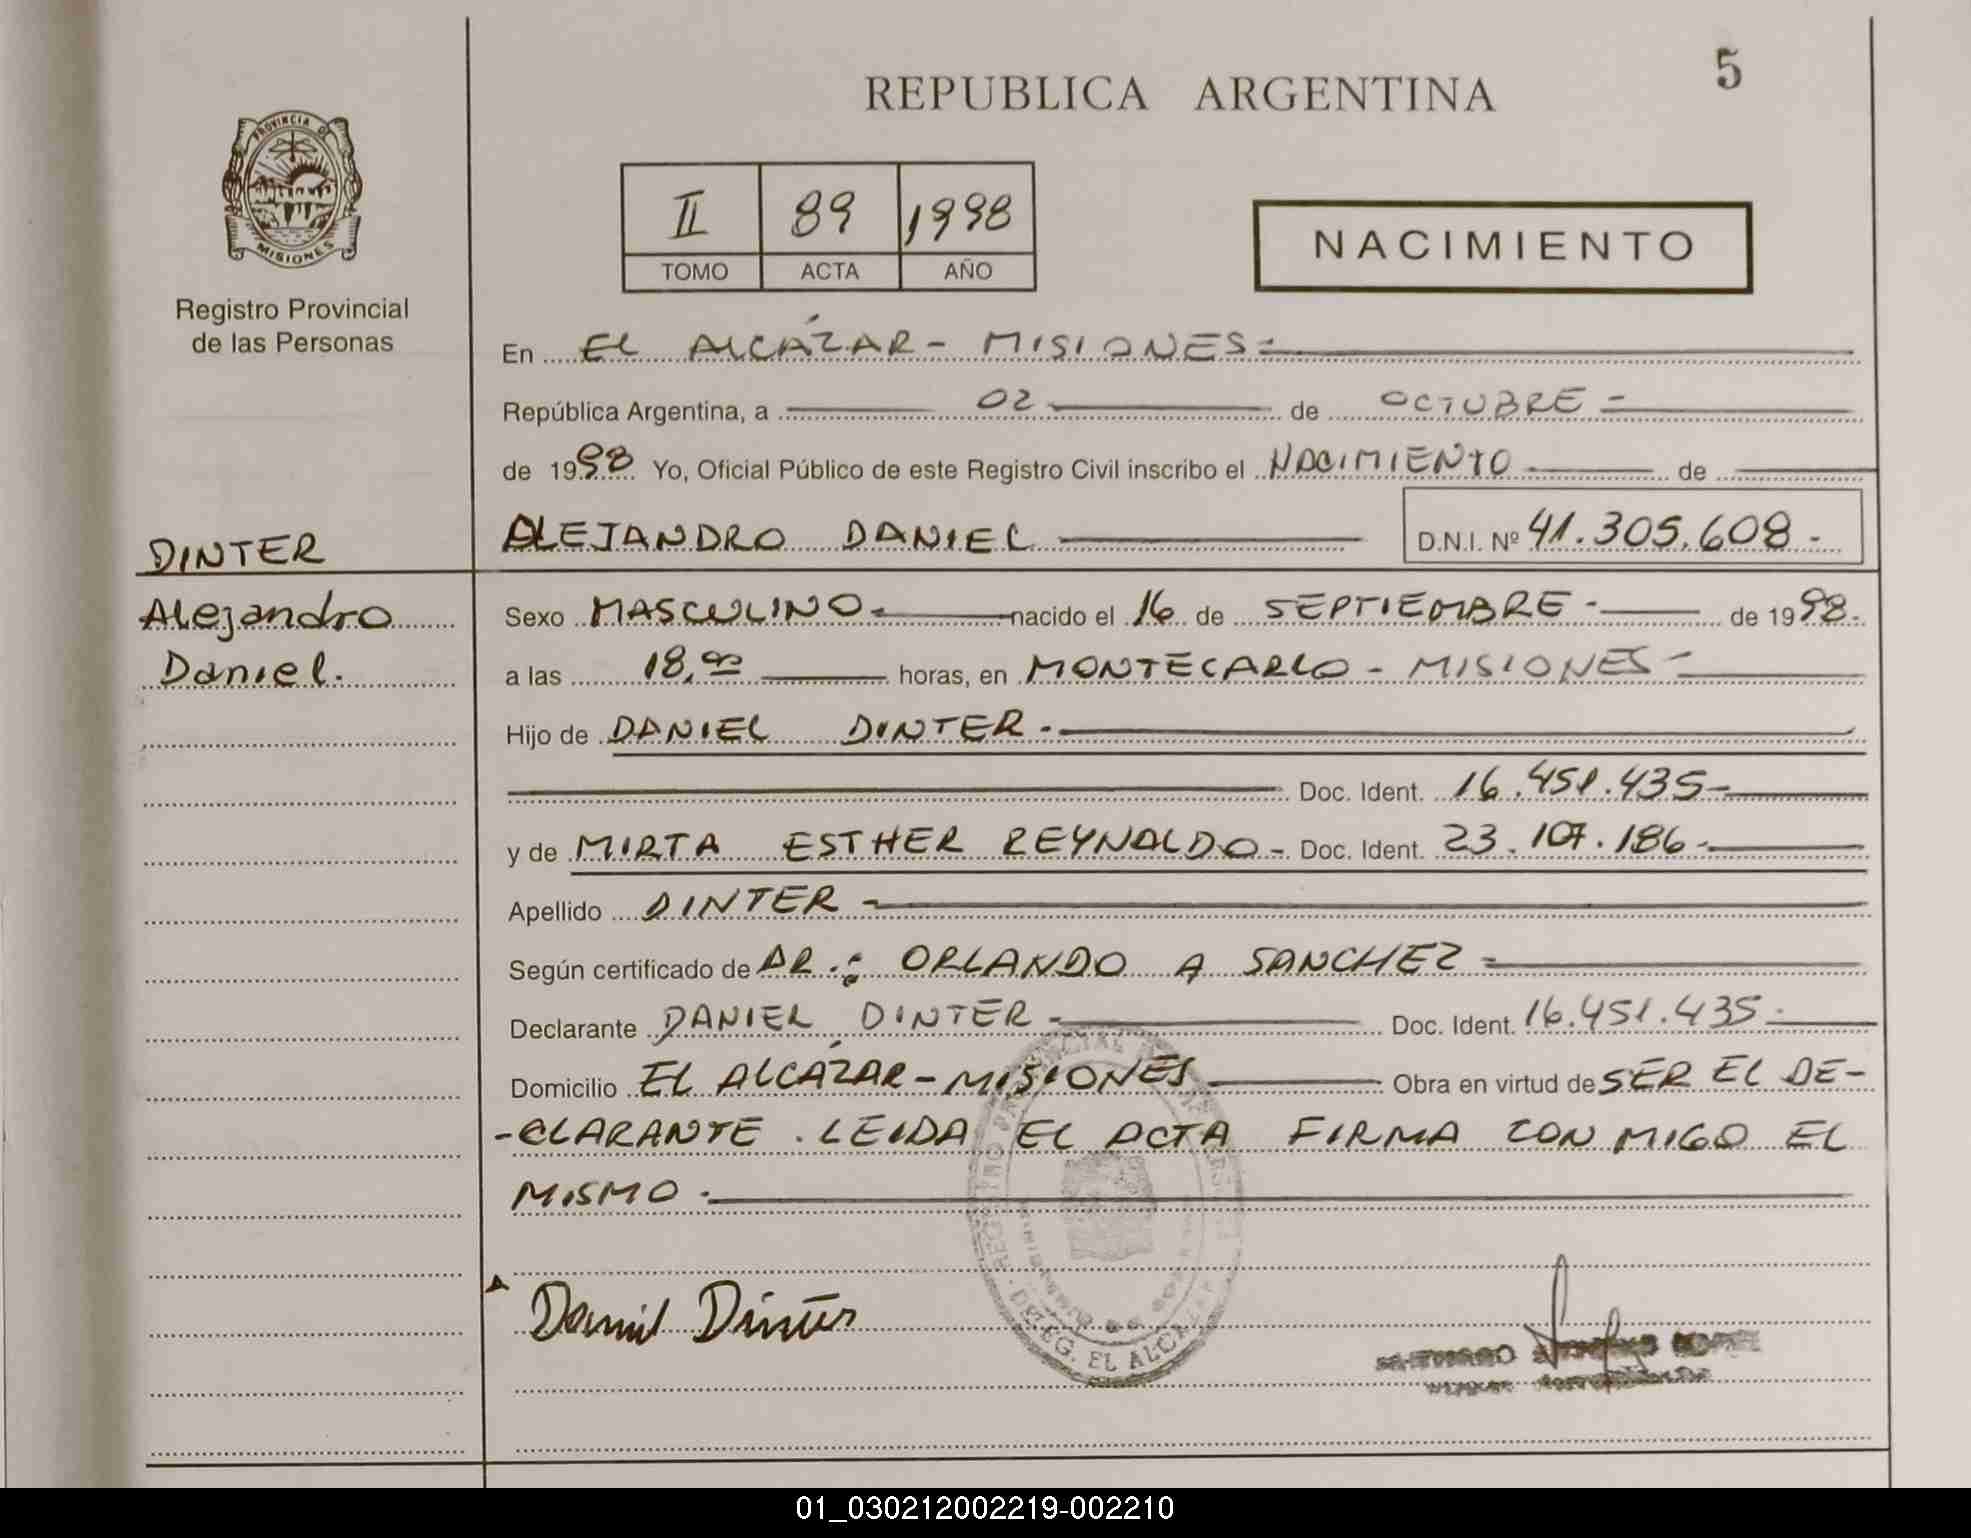 5
REPUBLICA ARGENTINA
PROVINCIA DE
MISIONES
Registro Provincial
de las Personas
II 89 1998
TOMO ACTA AÑO
NACIMIENTO
En EL ALCÁZAR - MISIONES -
República Argentina, a 02 de OCTUBRE -
de 1998 Yo, Oficial Público de este Registro Civil inscribo el NACIMIENTO de
DINTER
ALEJANDRO DANIEL
D.N.I. Nº 41.305.608 -
Alejandro
Daniel.
Sexo MASCULINO - nacido el 16 de SEPTIEMBRE - de 1998 -
a las 18,00 horas, en MONTECARLO - MISIONES -
Hijo de DANIEL DINTER -
Doc. Ident. 16.451.435 -
y de MIRTA ESTHER REYNALDO - Doc. Ident. 23.107.186 -
Apellido DINTER -
Según certificado de DR.: ORLANDO A SANCHEZ -
Declarante DANIEL DINTER - Doc. Ident. 16.451.435 -
Domicilio EL ALCÁZAR - MISIONES Obra en virtud de SER EL DE-
-CLARANTE . LEIDA EL ACTA FIRMA CONMIGO EL
MISMO .
Daniel Dinter
DELEG. EL ALCAZAR
01_030212002219-002210